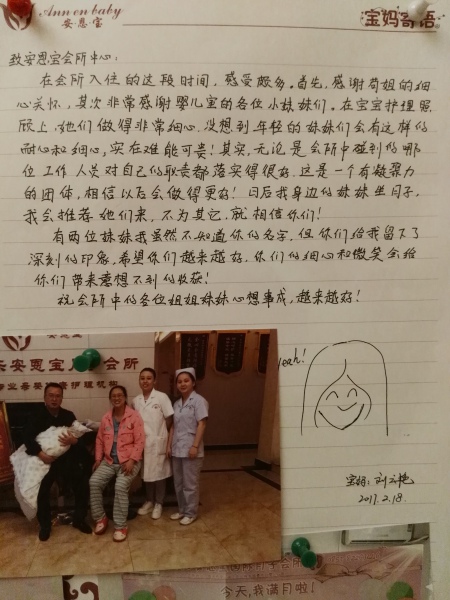 Ann on baby
安·恩·宝
宝妈寄语
致安恩宝会所中心:
在会所入住的这段时间,感受颇多。首先,感谢荷姐的细
心关怀,其次非常感谢婴儿室的各位小妹妹们。在宝宝护理照
顾上,她们做得非常细心,没想到年轻的妹妹们会有这样的
耐心和细心,实在难能可贵!其实,无论是会所中碰到的哪
位工作人员对自己的职责都落实得很好,这是一个有凝聚力
的团体,相信以后会做得更好!日后我身边的妹妹坐月子,
我会推荐她们来,不为其它,就相信你们!
有两位妹妹我虽然不知道你的名字,但你们给我留下了
深刻的印象,希望你们越来越好,你们的细心和微笑会给
你们带来意想不到的收获!
祝会所中的各位姐姐妹妹心想事成,越来越好!
yeah!
宝妈:刘
2017.2.18.
安恩宝 会所
今天,我满月啦!